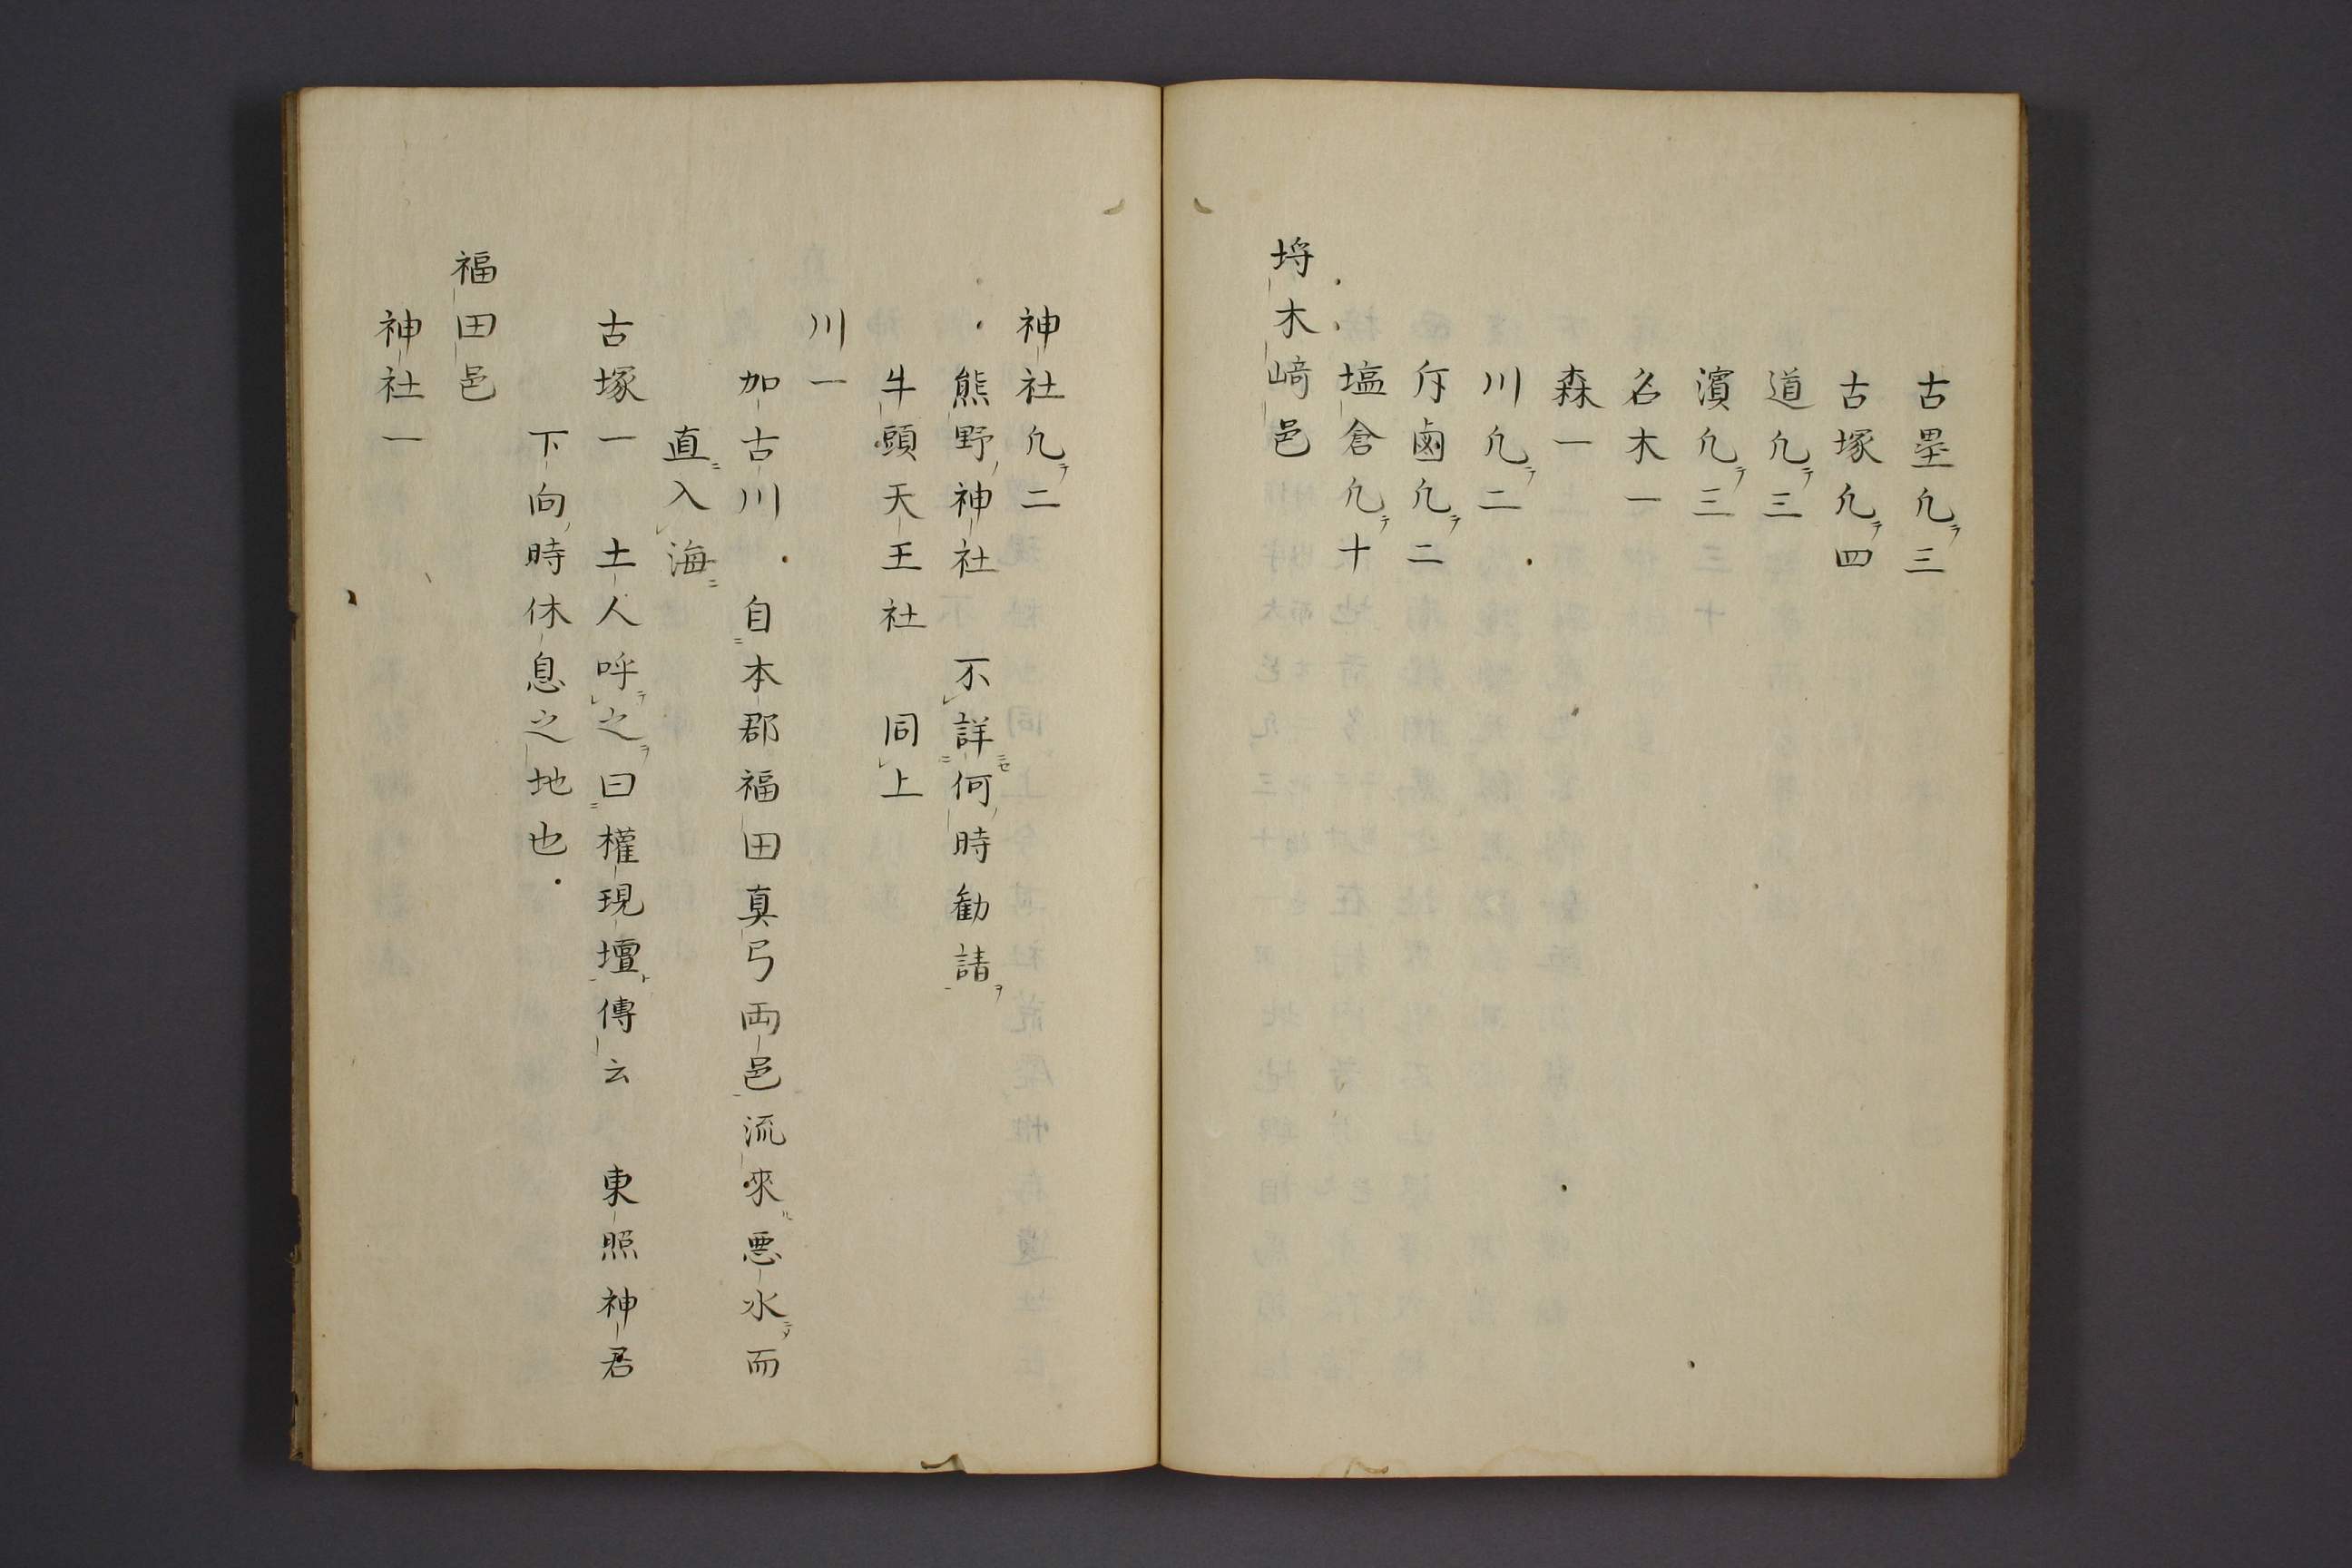 古壘凢三
古塚凢四
道凢三
濱凢三
名木一
森一
川凢二
斥鹵凢二
塩倉凢十
埒木﨑邑
神社凢二
熊野神社　不詳何時勧請
牛頭天王社　同上
川一
加古川　自本郡福田真弓両邑流來悪水而
直入海
古塚一　土人呼之曰權現壇傳云　東照神君
下向時休息之地也
福田邑
神社一